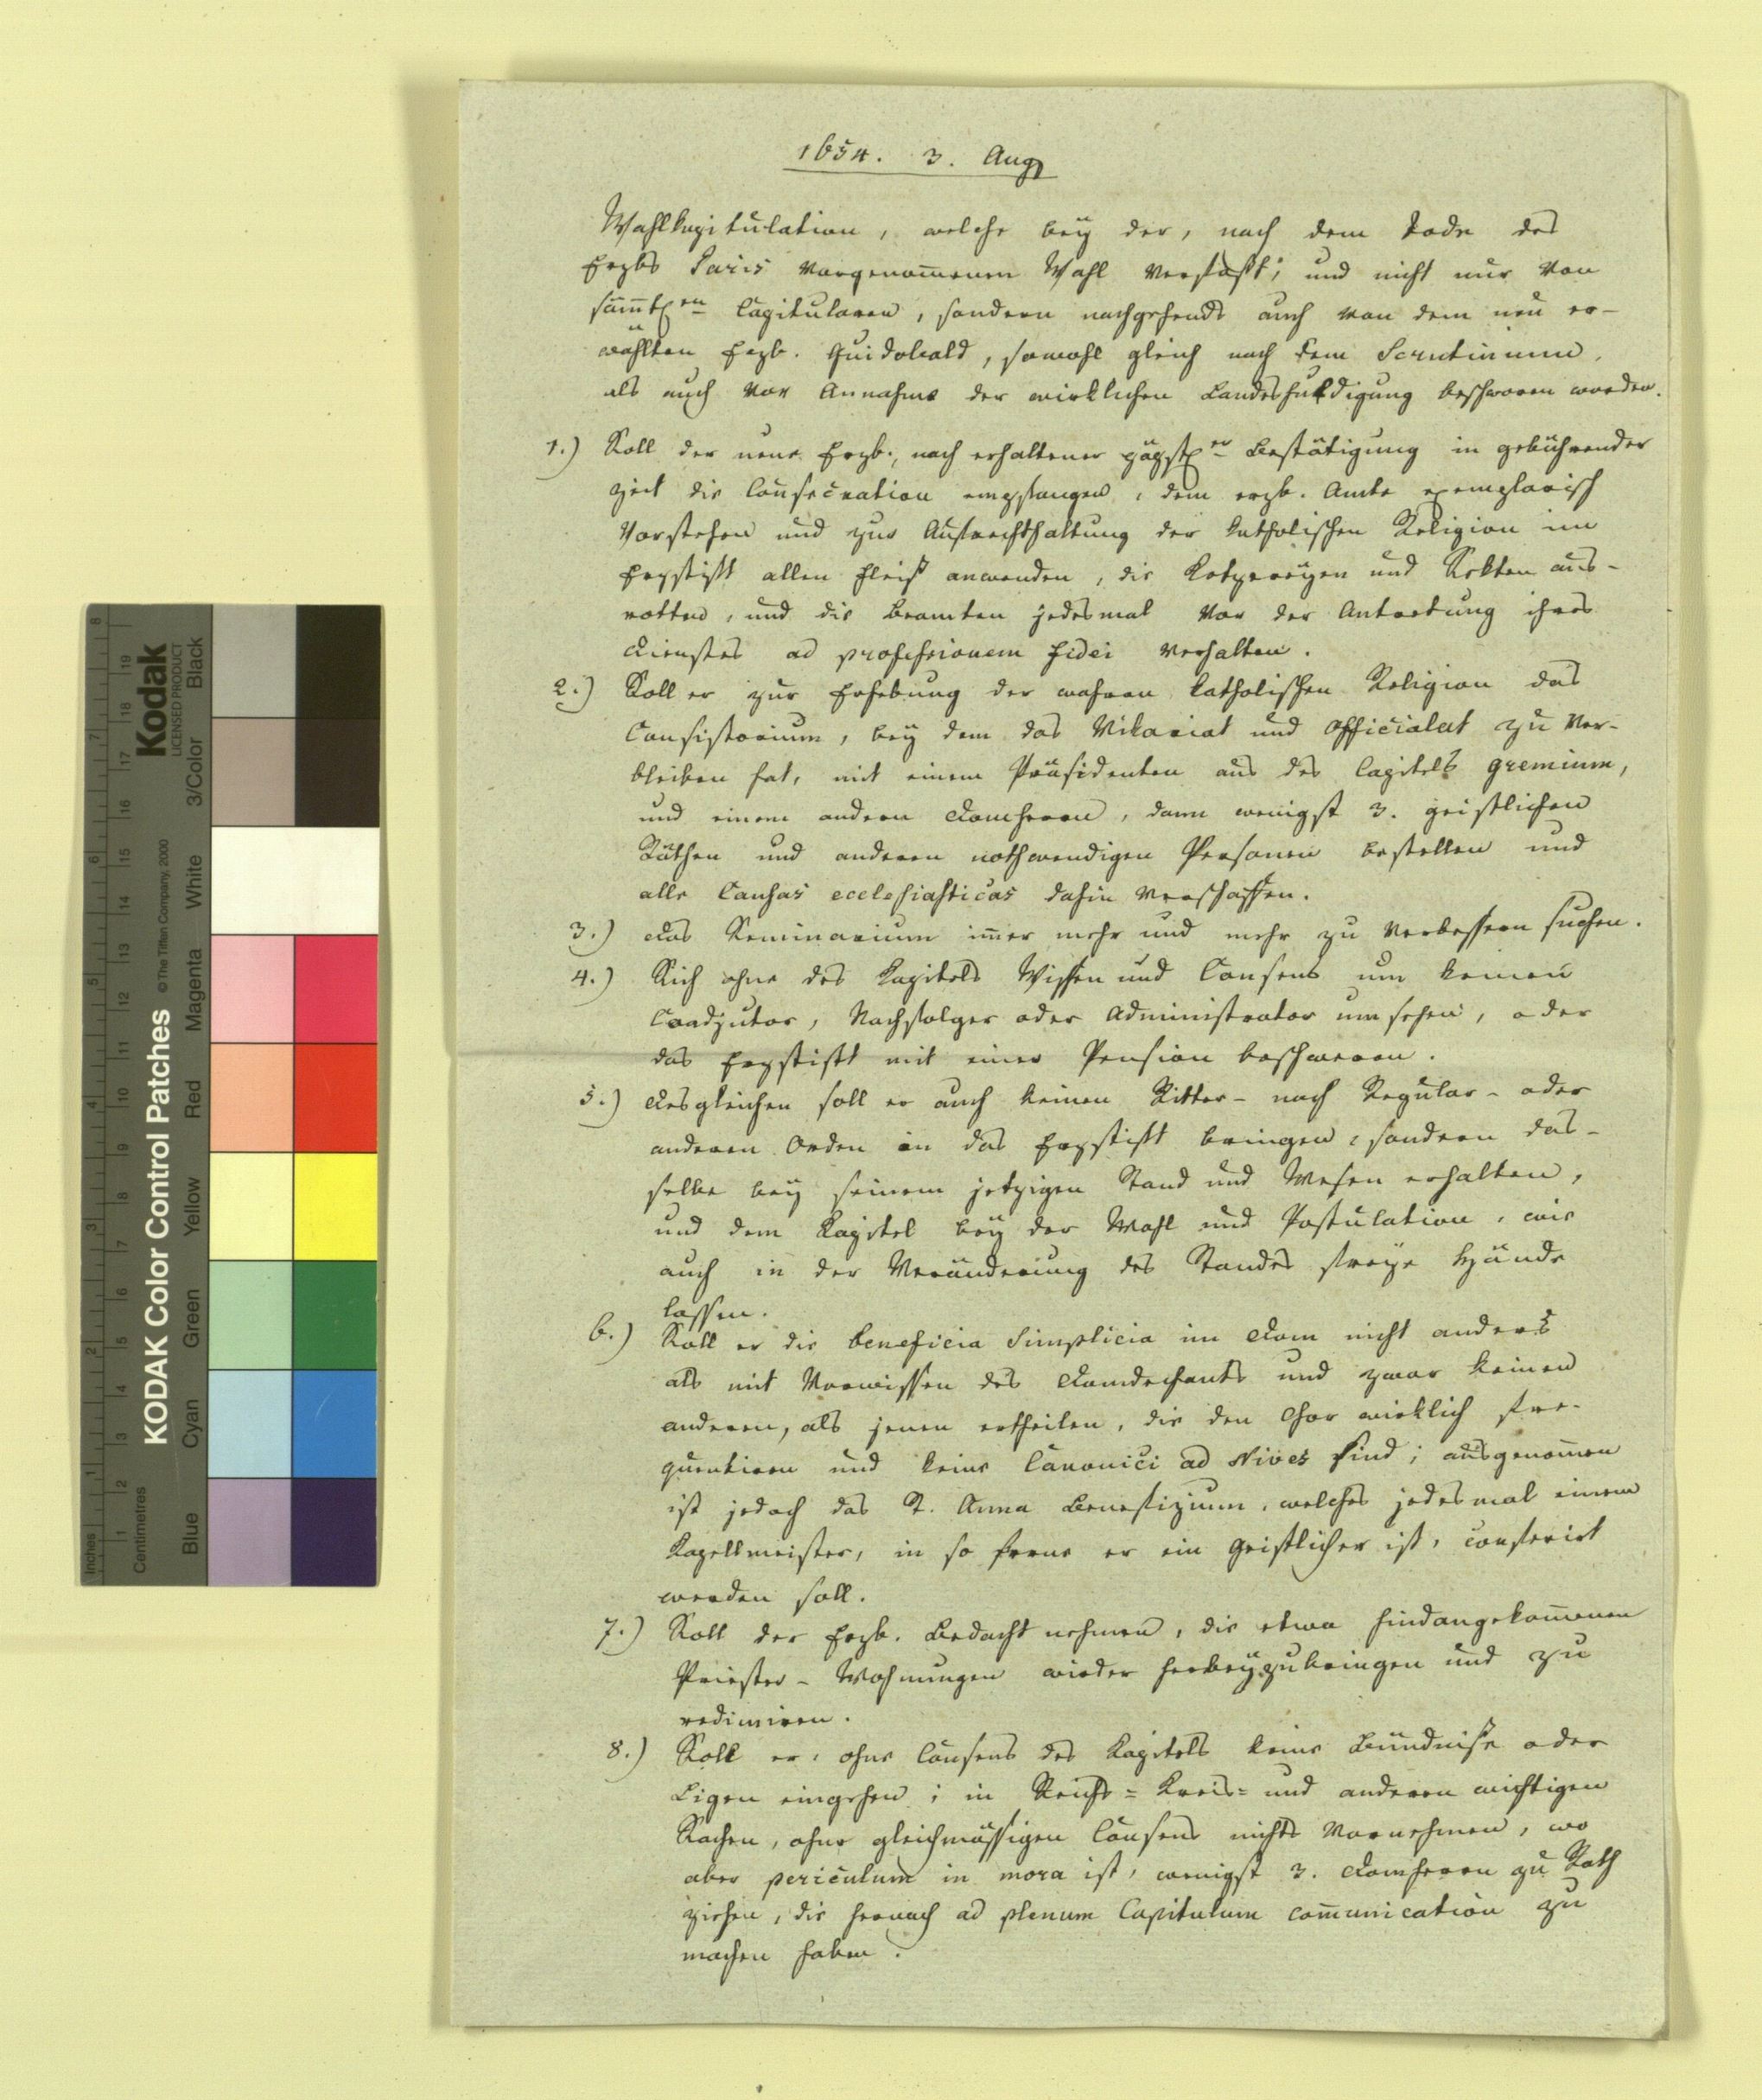 1654. 3. Aug
Wahlkapitulation, welche bey der, nach dem Tode des
Erzbs Paris vorgenom̄enen Wahl verfaßt; und nicht nur von
säm̄tlen Capitularen, sondern nachgehends auch von dem neu er-
wählten Erzb. Guidobald, sowohl gleich nach dem Scrutinium,
als auch vor Annahme der wirklichen Landeshuldigung beschworen worden.
1.) Soll der neue Erzb., nach erhaltener päpstler Bestätigung in gebührender
Zeit die Consecration empfangen, dem erzb. Amte exemplarisch
vorstehen und zur Aufrechthaltung der katholischen Religion im
Erzstift allen Fleiß anwenden, die Ketzereyen und Sekten aus-
rotten, und die Beamten jedesmal vor der Antretung ihres
Dienstes ad professionem fidei verhalten.
2.) Soll er zur Erhebung der wahren katholischen Religion das
Consistorium, bey dem das Vikariat und Officialat zu ver-
bleiben hat, mit einem Präsidenten aus des Capitels gremium,
und einem andern Domherrn, dann wenigst 3. geistlichen
Räthen und anderen nothwendigen Personen bestellen und
alle Causas ecclesiasticas dahin verschaffen.
3.) Das Seminarium im̄er mehr und mehr zu verbessern suchen.
4.) Sich ohne des Kapitels Wissen und Consens um keinen
Coadjutor, Nachfolger oder Administrator umsehen, oder
das Erzstift mit einer Pension beschweren.
5.) Desgleichen soll er auch keinen Ritter- noch Regular- oder
anderen Orden in das Erzstift bringen, sondern das-
selbe bey seinem jetzigen Stand und Wesen erhalten,
und dem Kapitel bey der Wahl und Postulation, wie
auch in der Veränderung des Standes freye Hände
lassen.
6.) Soll er die beneficia Simplicia im Dom nicht anders
als mit Vorwissen des Domdechants und zwar keinen
anderen, als jenen ertheilen, die den Chor wirklich fre-
quentiren und keine Canonici ad Nives sind; ausgenom̄en
ist jedoch das St. Anna Benefizium, welches jedesmal einem
Kapellmeister, in so ferne er ein Geistlicher ist, conferirt
werden soll.
7.) Soll der Erzb. Bedacht nehmen, die etwa hindangekom̄enen
Priester- Wohnungen wieder herbeyzubringen und zu
redimiren.
8.) Soll er, ohne Consens des Kapitels keine Bündniße oder
Ligen eingehen; in Reichs= Kreis= und anderen wichtigen
Sachen, ohne gleichmässigen Consens nichts vornehmen, wo
aber periculum in mora ist, wenigst 3. Domherrn zu Rath
ziehen, die hernach ad plenum Capitulum com̄unication zu
machen haben.
Kodak
LICENSED PRODUCT
KODAK Color Control Patches
© The Tiffen Company, 2000
Inches 1 2 3 4 5 6 7 8
Centimetres 1 2 3 4 5 6 7 8 9 10 11 12 13 14 15 16 17 18 19
Blue Cyan Green Yellow Red Magenta White 3/Color Black